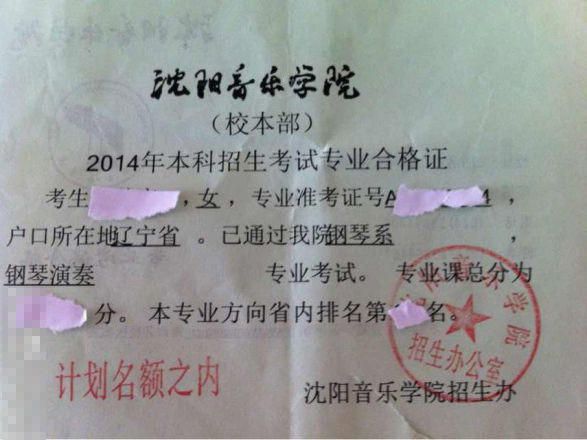 沈阳音乐学院
（校本部）
2014年本科招生考试专业合格证
考生 ，女，专业准考证号A 4，
户口所在地辽宁省。已通过我院钢琴系，
钢琴演奏 专业考试。 专业课总分为
分。本专业方向省内排名第 名。
计划名额之内
沈阳音乐学院招生办
音乐学院
招生办公室